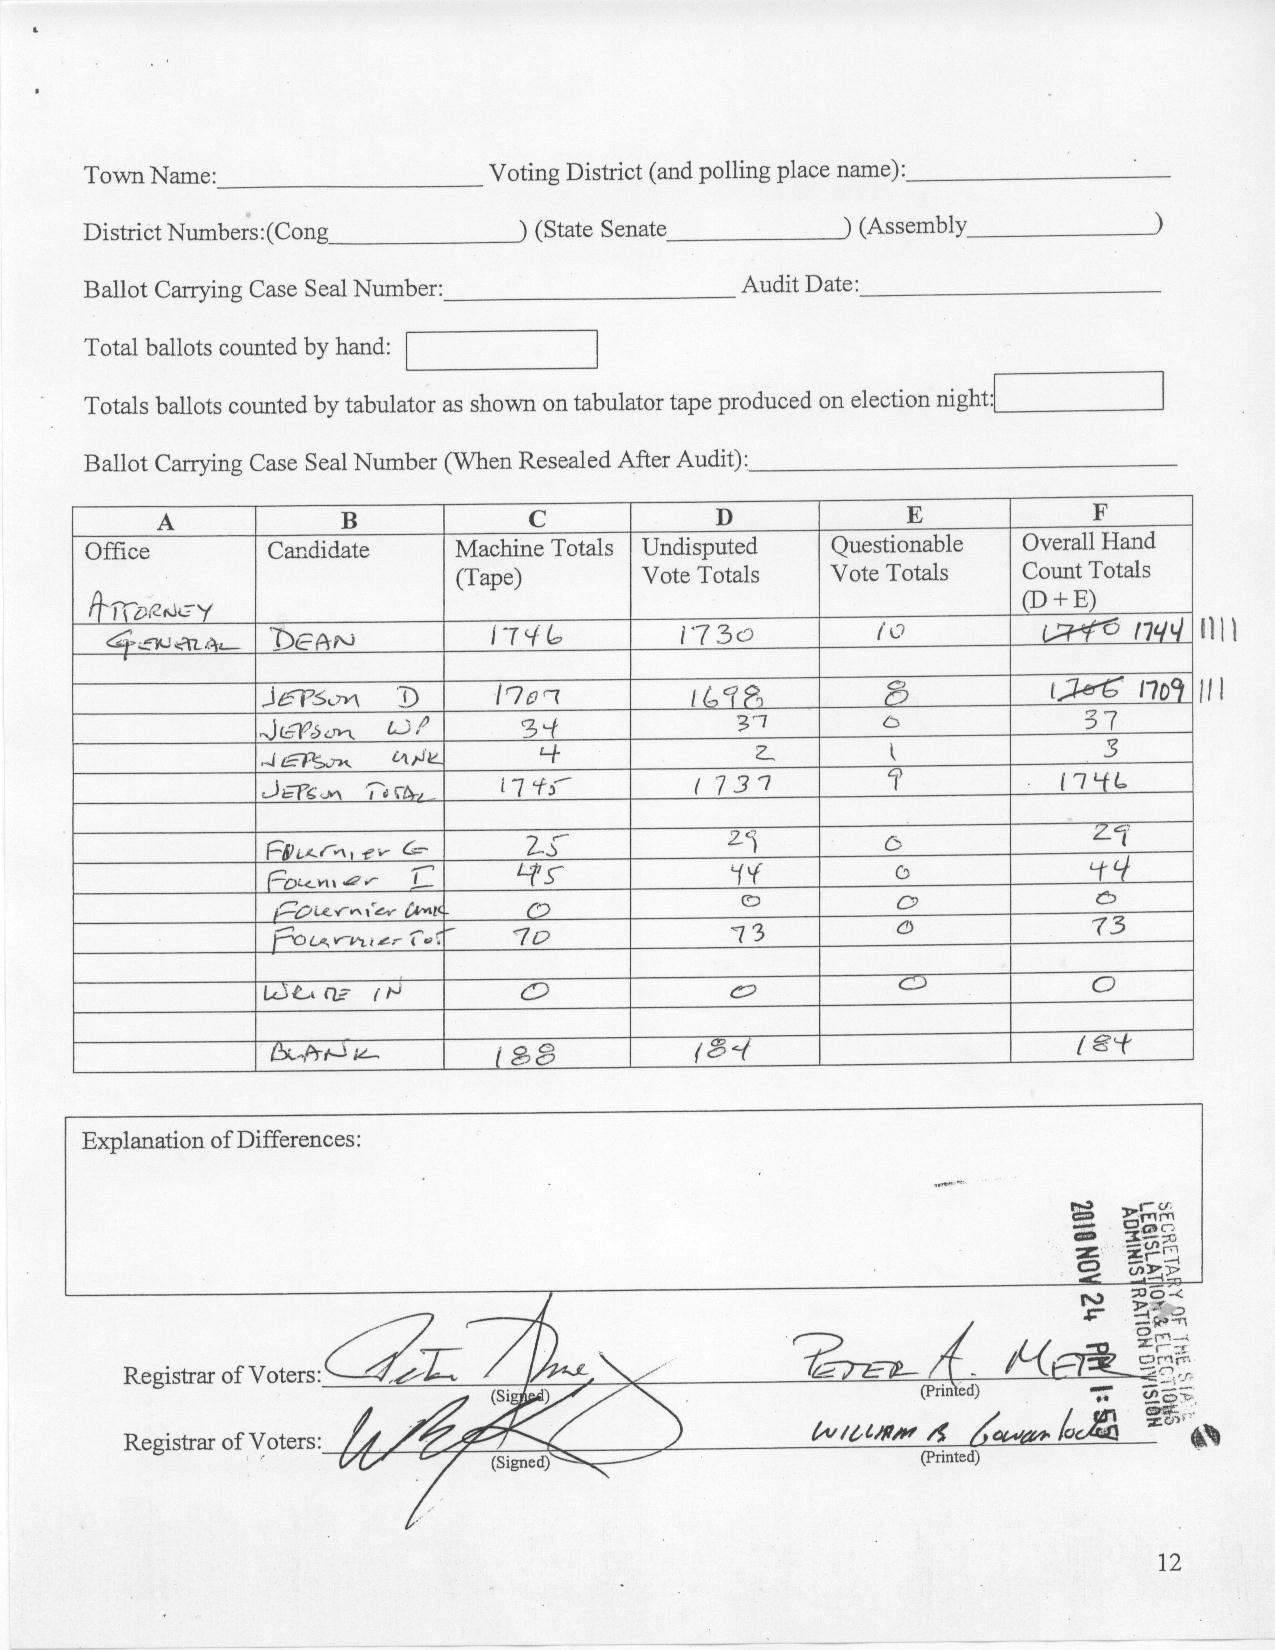 Town Name: Voting District (and polling place name):
District Numbers:(Cong ) (State Senate ) (Assembly )
Ballot Carrying Case Seal Number: Audit Date:
Total ballots counted by hand:
Totals ballots counted by tabulator as shown on tabulator tape produced on election night:
Ballot Carrying Case Seal Number (When Resealed After Audit):
A B C D E F
Office Candidate Machine Totals (Tape) Undisputed Vote Totals Questionable Vote Totals Overall Hand Count Totals (D + E)
ATTORNEY
GENERAL DEAN 1746 1730 10 1740 1744 ||||
JEPSON D 1707 1698 8 1706 1709 |||
JEPSON WP 34 37 0 37
JEPSON UNK 4 2 1 3
JEPSON TOTAL 1745 1737 9 1746
Fournier G 25 29 0 29
Founier I 45 44 0 44
Fournier Unk 0 0 0 0
Fournier Tot 70 73 0 73
WRITE IN 0 0 0 0
BLANK 188 184 184
Explanation of Differences:
SECRETARY OF THE STATE
LEGISLATION & ELECTIONS
ADMINISTRATION DIVISION
2010 NOV 24 PM 1:55
Registrar of Voters: PETER A.
(Signed) (Printed)
Registrar of Voters: WILLIAM B
(Signed) (Printed)
12